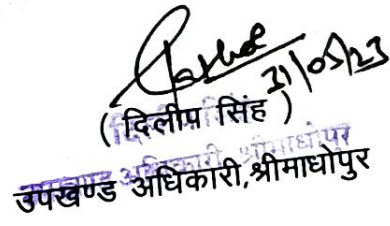 31/05/23
( दिलीप सिंह )
उपखण्ड अधिकारी,श्रीमाधोपुर
उपखण्ड अधिकारी, श्रीमाधोपुर